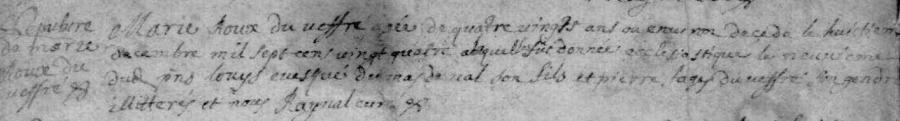 Sepulture
de marie
Roux du
veffre
Marie Roux du veffre agée de quatre vingts ans ou environ deceda le huictieme
decembre mil sept cens vingt quatre et sepulture donnée ecclesiastique le neuvieme
dud pns louys evesque du mas de val son fils et pierre pages du veffre son gendre
illiteres et nous Raynal cure